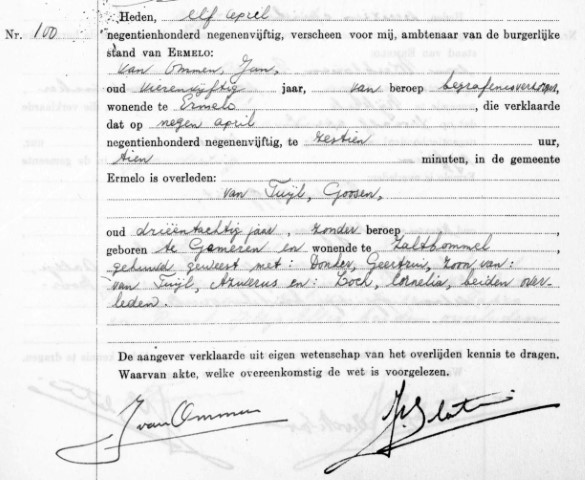 Heden, elf april
Nr. 100
negentienhonderd negenenvijftig, verscheen voor mij, ambtenaar van de burgerlijke
stand van ERMELO:
van Ommen, Jan,
oud vierenvijftig jaar, van beroep begrafenisverzorger,
wonende te Ermelo, die verklaarde
dat op negen april
negentienhonderd negenenvijftig, te zestien uur,
tien minuten, in de gemeente
Ermelo is overleden:
van Tuijl, Goosen,
oud drieëntachtig jaar, zonder beroep
geboren te Gameren en wonende te Zaltbommel,
gehuwd geweest met: Donder, Geertrui, zoon van:
van Tuijl, Azuerus en: Loch, Cornelia, beiden over-
leden.
De aangever verklaarde uit eigen wetenschap van het overlijden kennis te dragen.
Waarvan akte, welke overeenkomstig de wet is voorgelezen.
J van Ommen